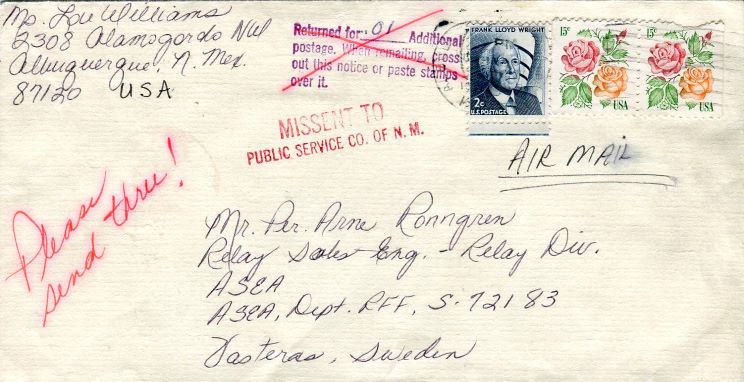 Ms. Lou Williams
2308 Alamogordo NW
Albuquerque, N. Mex.
87120 USA
Returned for .01 Additional
postage. When remailing, cross
out this notice or paste stamps
over it.
MISSENT TO
PUBLIC SERVICE CO. OF N. M.
FRANK LLOYD WRIGHT
2c
U.S. POSTAGE
15c
USA
15c
USA
AIR MAIL
Please
send thru!
Mr. Per. Arne Ronngren
Relay Sales Eng. - Relay Div.
ASEA
ASEA, Dept. RFF, S-721 83
Vasteras, Sweden